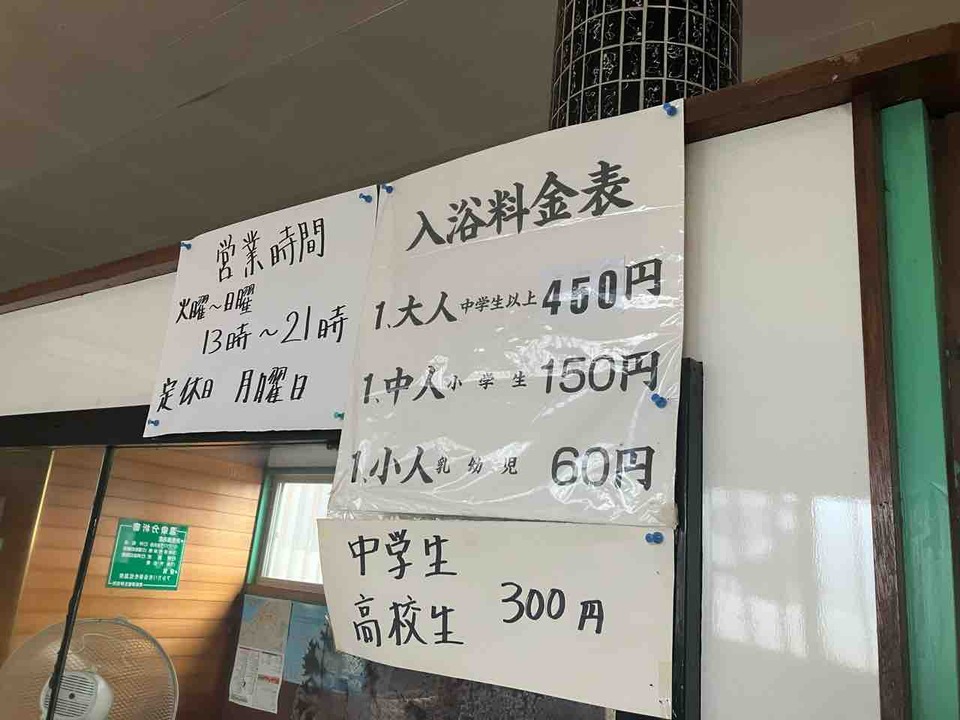 営業時間
火曜~日曜
13時~21時
定休日 月曜日
入浴料金表
1.大人 中学生以上 450円
1.中人 小学生 150円
1.小人 乳幼児 60円
中学生
高校生 300円
温泉分析書